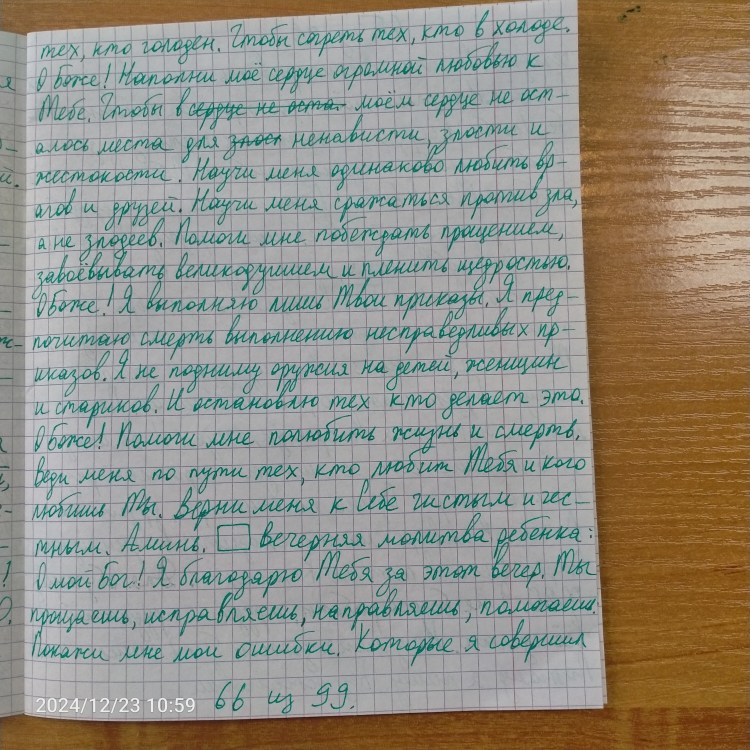 тех, кто голоден. Чтобы согреть тех, кто в холоде.
О Боже! Наполни моё сердце огромной любовью к
Тебе. Чтобы в сердце не оста- моём сердце не ост-
алось места для злост ненависти, злости и
жестокости. Научи меня одинаково любить вр-
агов и друзей. Научи меня сражаться против зла,
а не злодеев. Помоги мне побеждать прощением,
завоёвывать великодушием и пленить щедростью.
О Боже! Я выполняю лишь Твои приказы. Я пред-
почитаю смерть выполнению несправедливых пр-
иказов. Я не подниму оружия на детей, женщин
и стариков. И остановлю тех кто делает это.
О Боже! Помоги мне полюбить жизнь и смерть.
Веди меня по пути тех, кто любит Тебя и кого
любишь Ты. Верни меня к Себе чистым и чес-
тным. Аминь. Вечерняя молитва ребенка:
О мой Бог! Я благодарю Тебя за этот вечер. Ты
прощаешь, исправляешь, направляешь, помогаешь.
Покажи мне мои ошибки. Которые я совершил
66 из 99.
2024/12/23 10:59